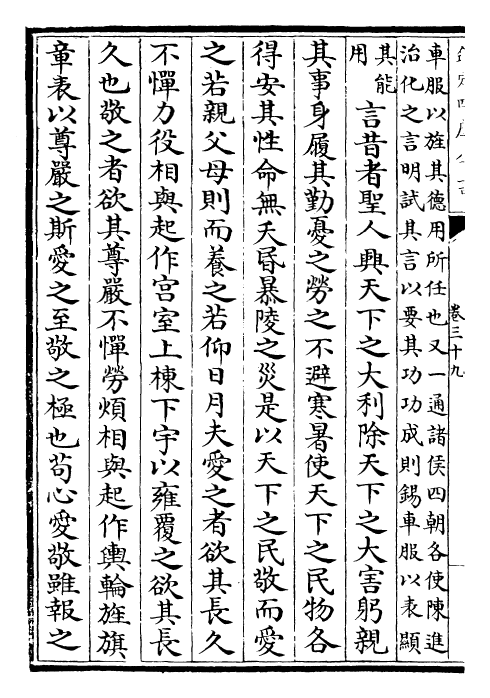 卷三十九
車服以旌其德用所任也又一通諸侯四朝各使陳進
治化之言明試其言以要其功功成則錫車服以表顯
其能
用
言昔者聖人興天下之大利除天下之大害躬親
其事身履其勤憂之勞之不避寒暑使天下之民物各
得安其性命無夭昏暴陵之災是以天下之民敬而愛
之若親父母則而養之若仰日月夫愛之者欲其長久
不憚力役相與起作宫室上棟下宇以雍覆之欲其長
久也敬之者欲其尊嚴不憚勞煩相與起作輿輪旌旗
章表以尊嚴之斯愛之至敬之極也苟心愛敬雖報之